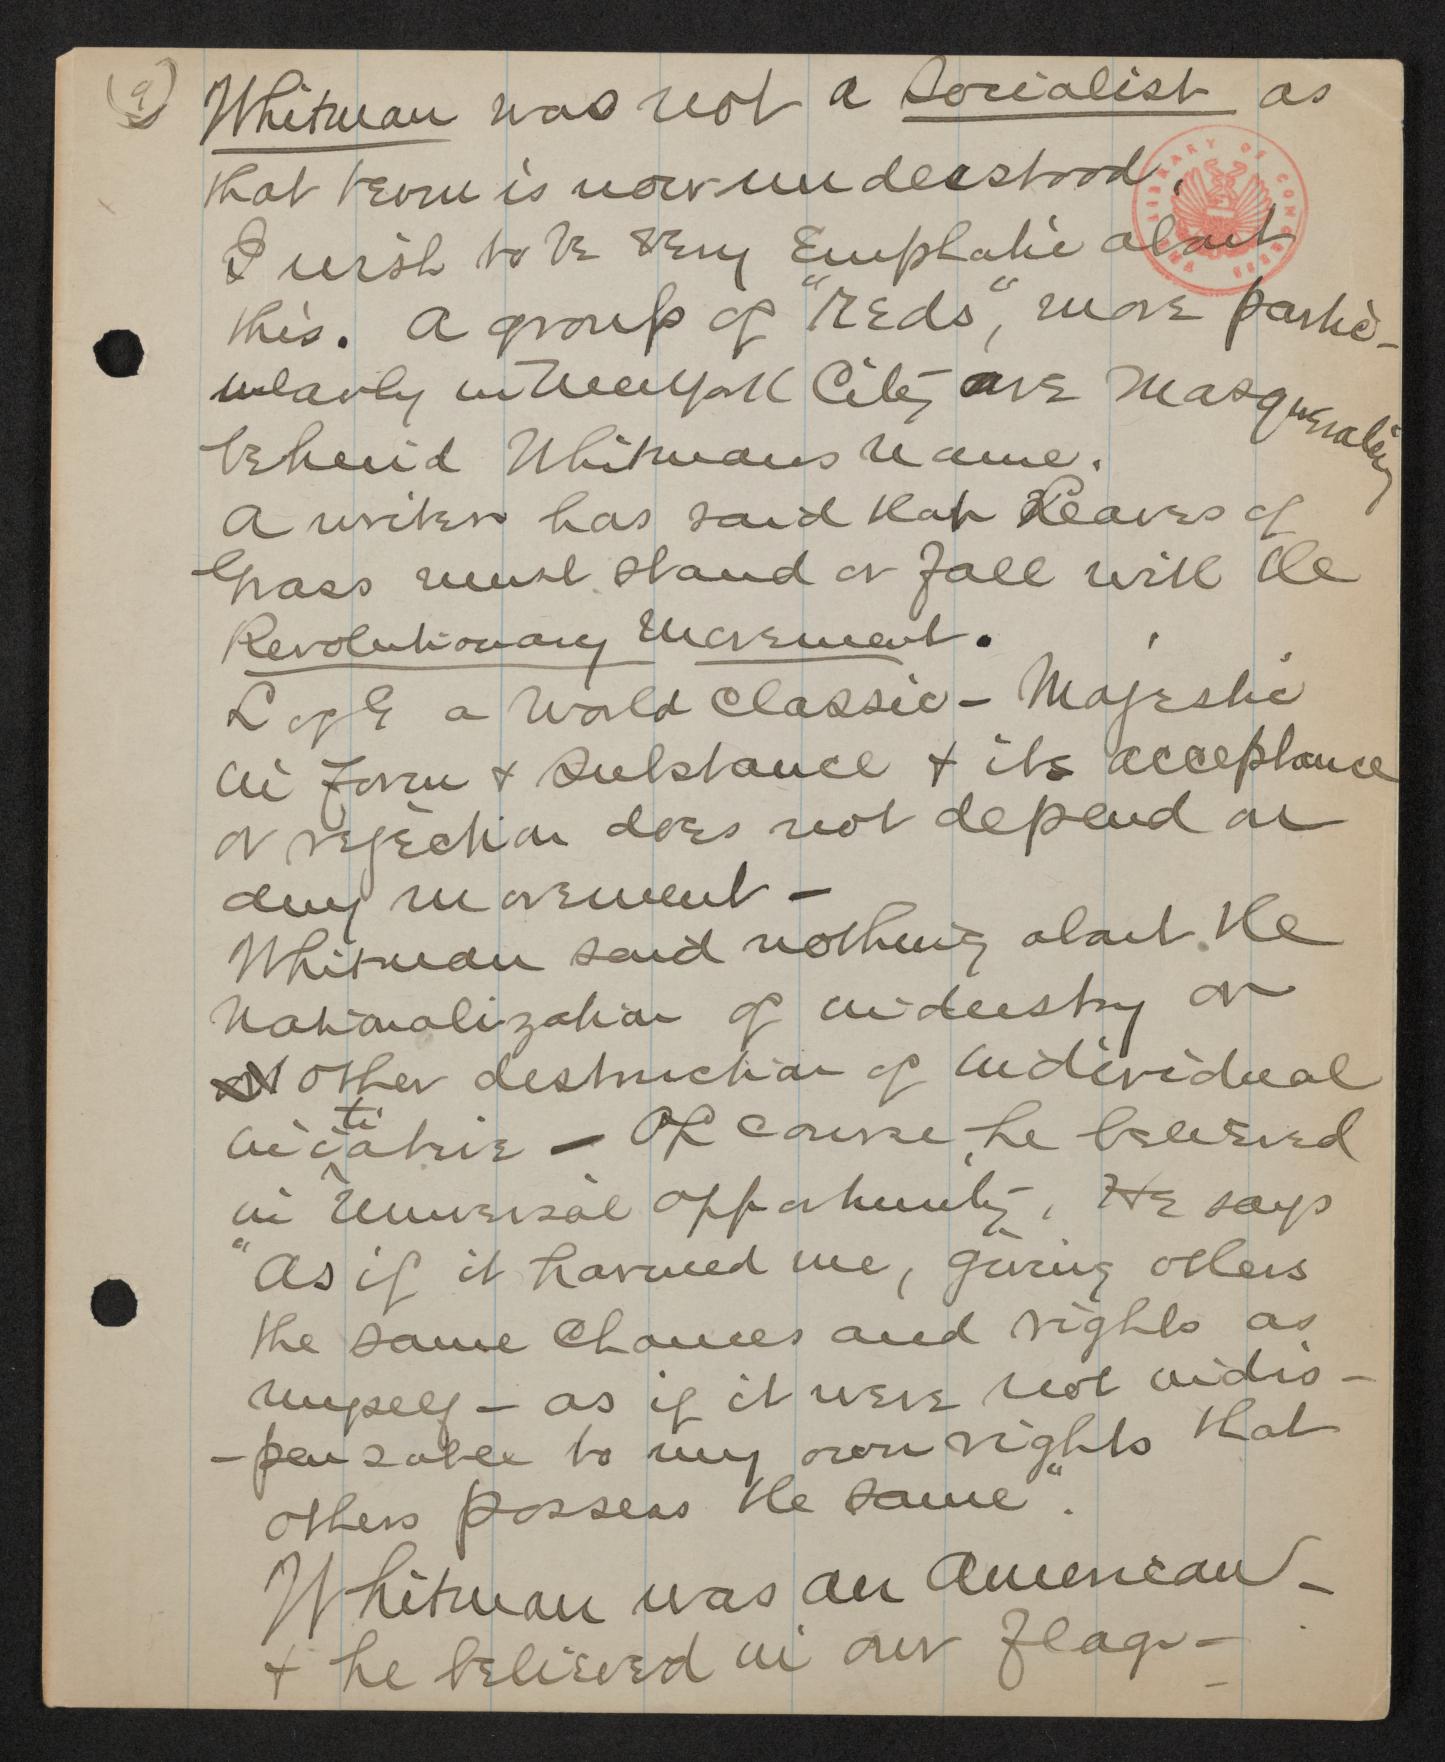 (9)
Whitman was not a Socialist as
that term is now understood.
I wish to be very Emphatic about
this. A group of "Reds", more partic-
ularly in New York City are Masquerading
behind Whitmans name.
A writer has said that Leaves of
Grass must stand or fall with the
Revolutionary Movement.
L of G a World Classic - Majestic
in form + substance + its acceptance
or rejection does not depend on
any movement -
Whitman said nothing about the
Nationalization of industry or
other destruction of individual
iniciative - Of course he believed
in Universal opportunity. He says
"As if it harmed me, giving others
the same Chances and rights as
myself - as if it were not indis-
-pensable to my own rights that
others possess the same".
Whitman was an American -
+ he believed in our flag -
LIBRARY OF CONGRESS